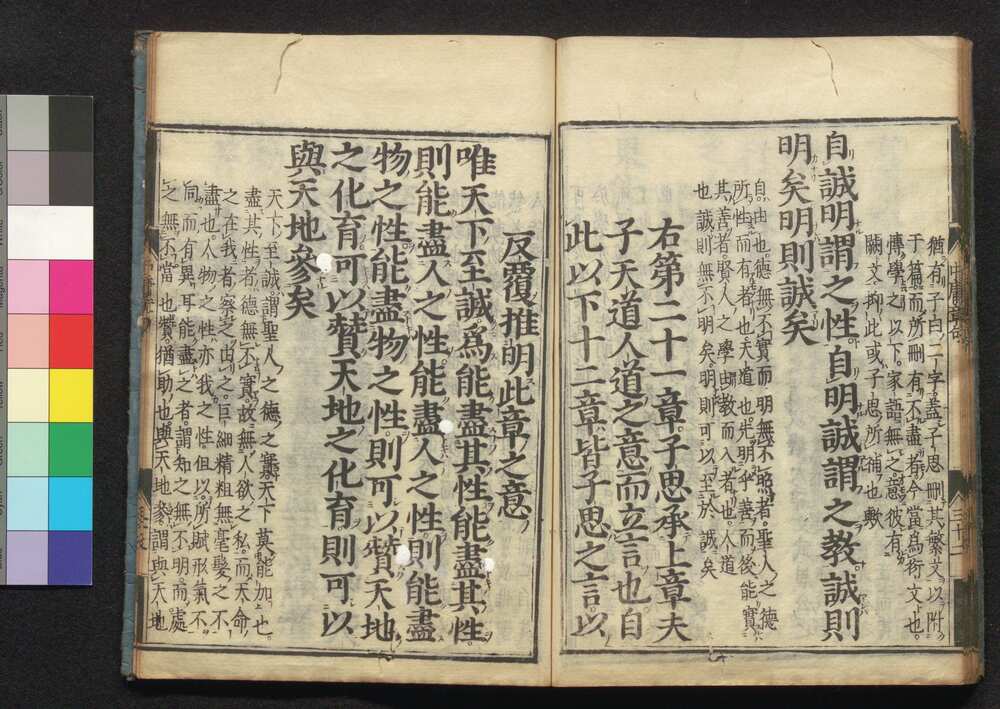 猶有子曰二字蓋子思刪其繁文以附
于篇而所刪有不盡者今當爲衍文也
博學之以下家語無之意彼有
闕文抑此或子思所補也歟
自誠明謂之性自明誠謂之教誠則
明矣明則誠矣
自由也德無不實而明無不照者聖人之德
所性而有者也天道也先明乎善而後能實
其善者賢人之學由教而入者也人道
也誠則無不明矣明則可以至於誠矣
右第二十一章子思承上章夫
子天道人道之意而立言也自
此以下十二章皆子思之言以
反覆推明此章之意
唯天下至誠爲能盡其性能盡其性
則能盡人之性能盡人之性則能盡
物之性能盡物之性則可以贊天地
之化育可以贊天地之化育則可以
與天地參矣
天下至誠謂聖人之德之實天下莫能加也
盡其性者德無不實故無人欲之私而天命
之在我者察之由之巨細精粗無毫髮之不
盡也人物之性亦我之性但以所賦形氣不
同而有異耳能盡之者謂知之無不明而處
之無不當也贊猶助也與天地參謂與天地